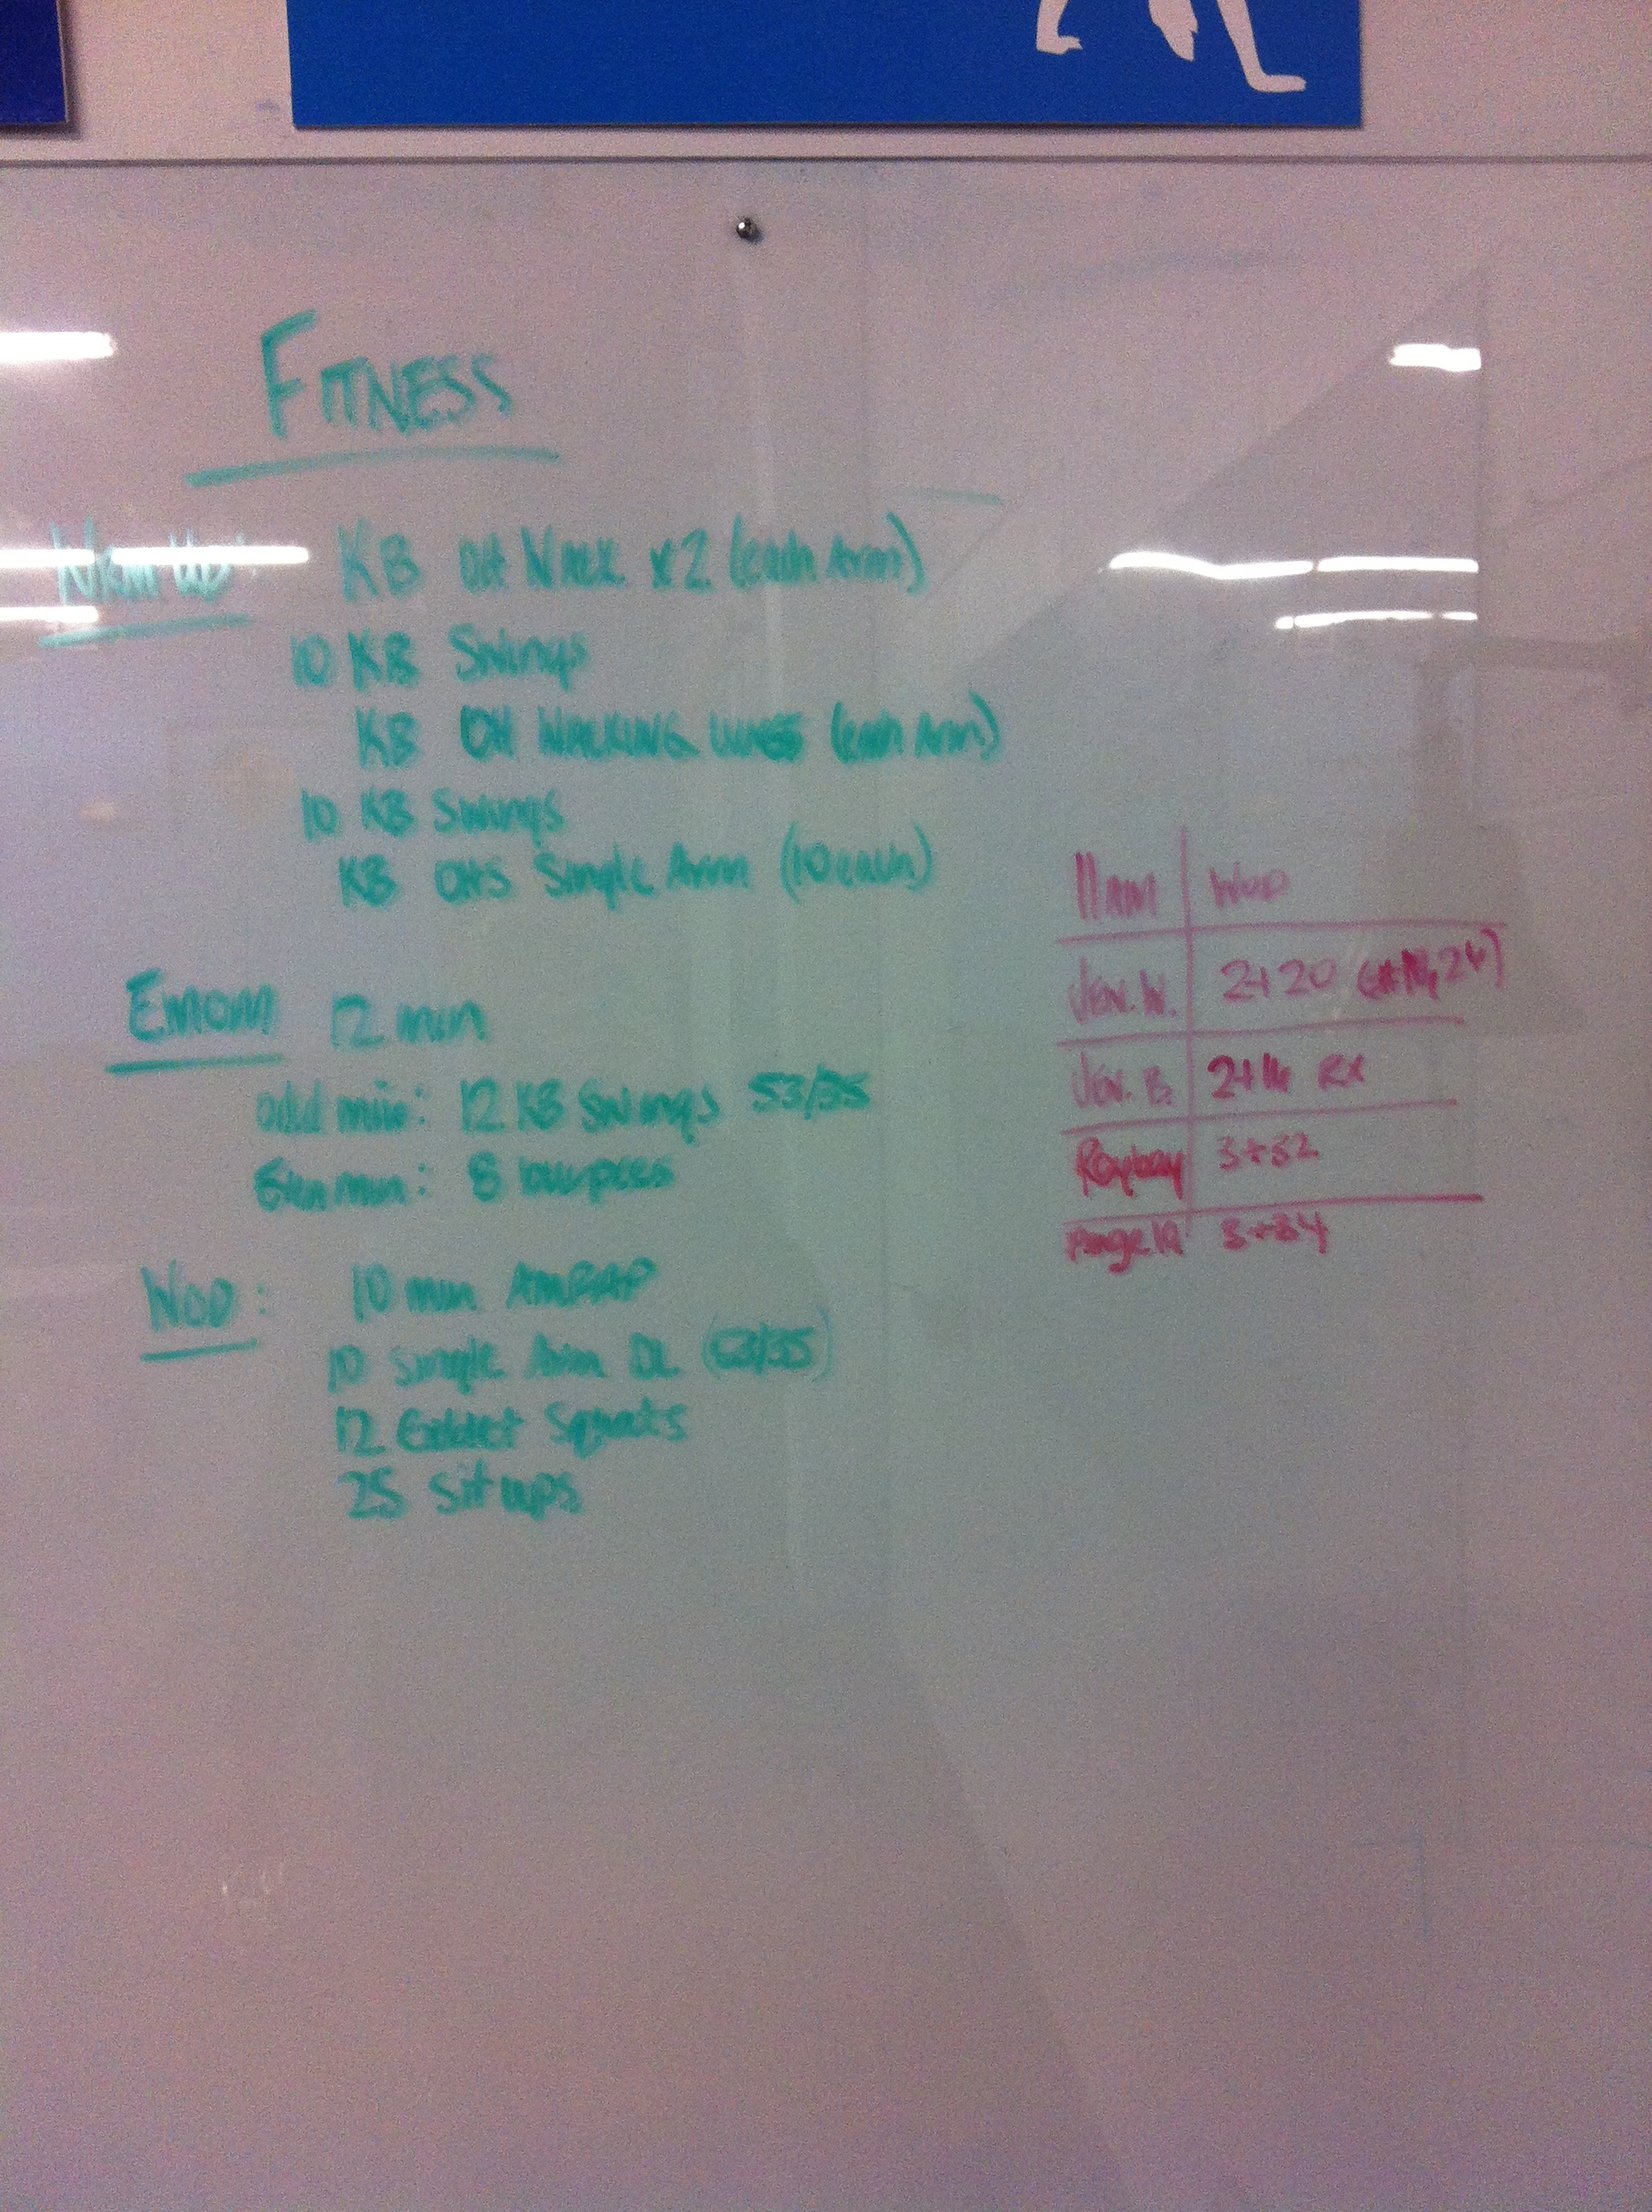 FITNESS
WRM UP: KB OH WALK x2 (each Arm)
10 KB Swings
KB OH WALKING LUNGES (each Arm)
10 KB Swings
KB OHS Single Arm (10 each)
EMOM 12 min
odd min: 12 KB Swings 53/35
Even min: 8 burpees
WOD: 10 min AMRAP
10 Single Arm DL (53/35)
12 Goblet Squats
25 Sit ups
11AM WOD
Jen. W. 2+20
Jen. B. 2+16 RX
3+32
Angela 3+34